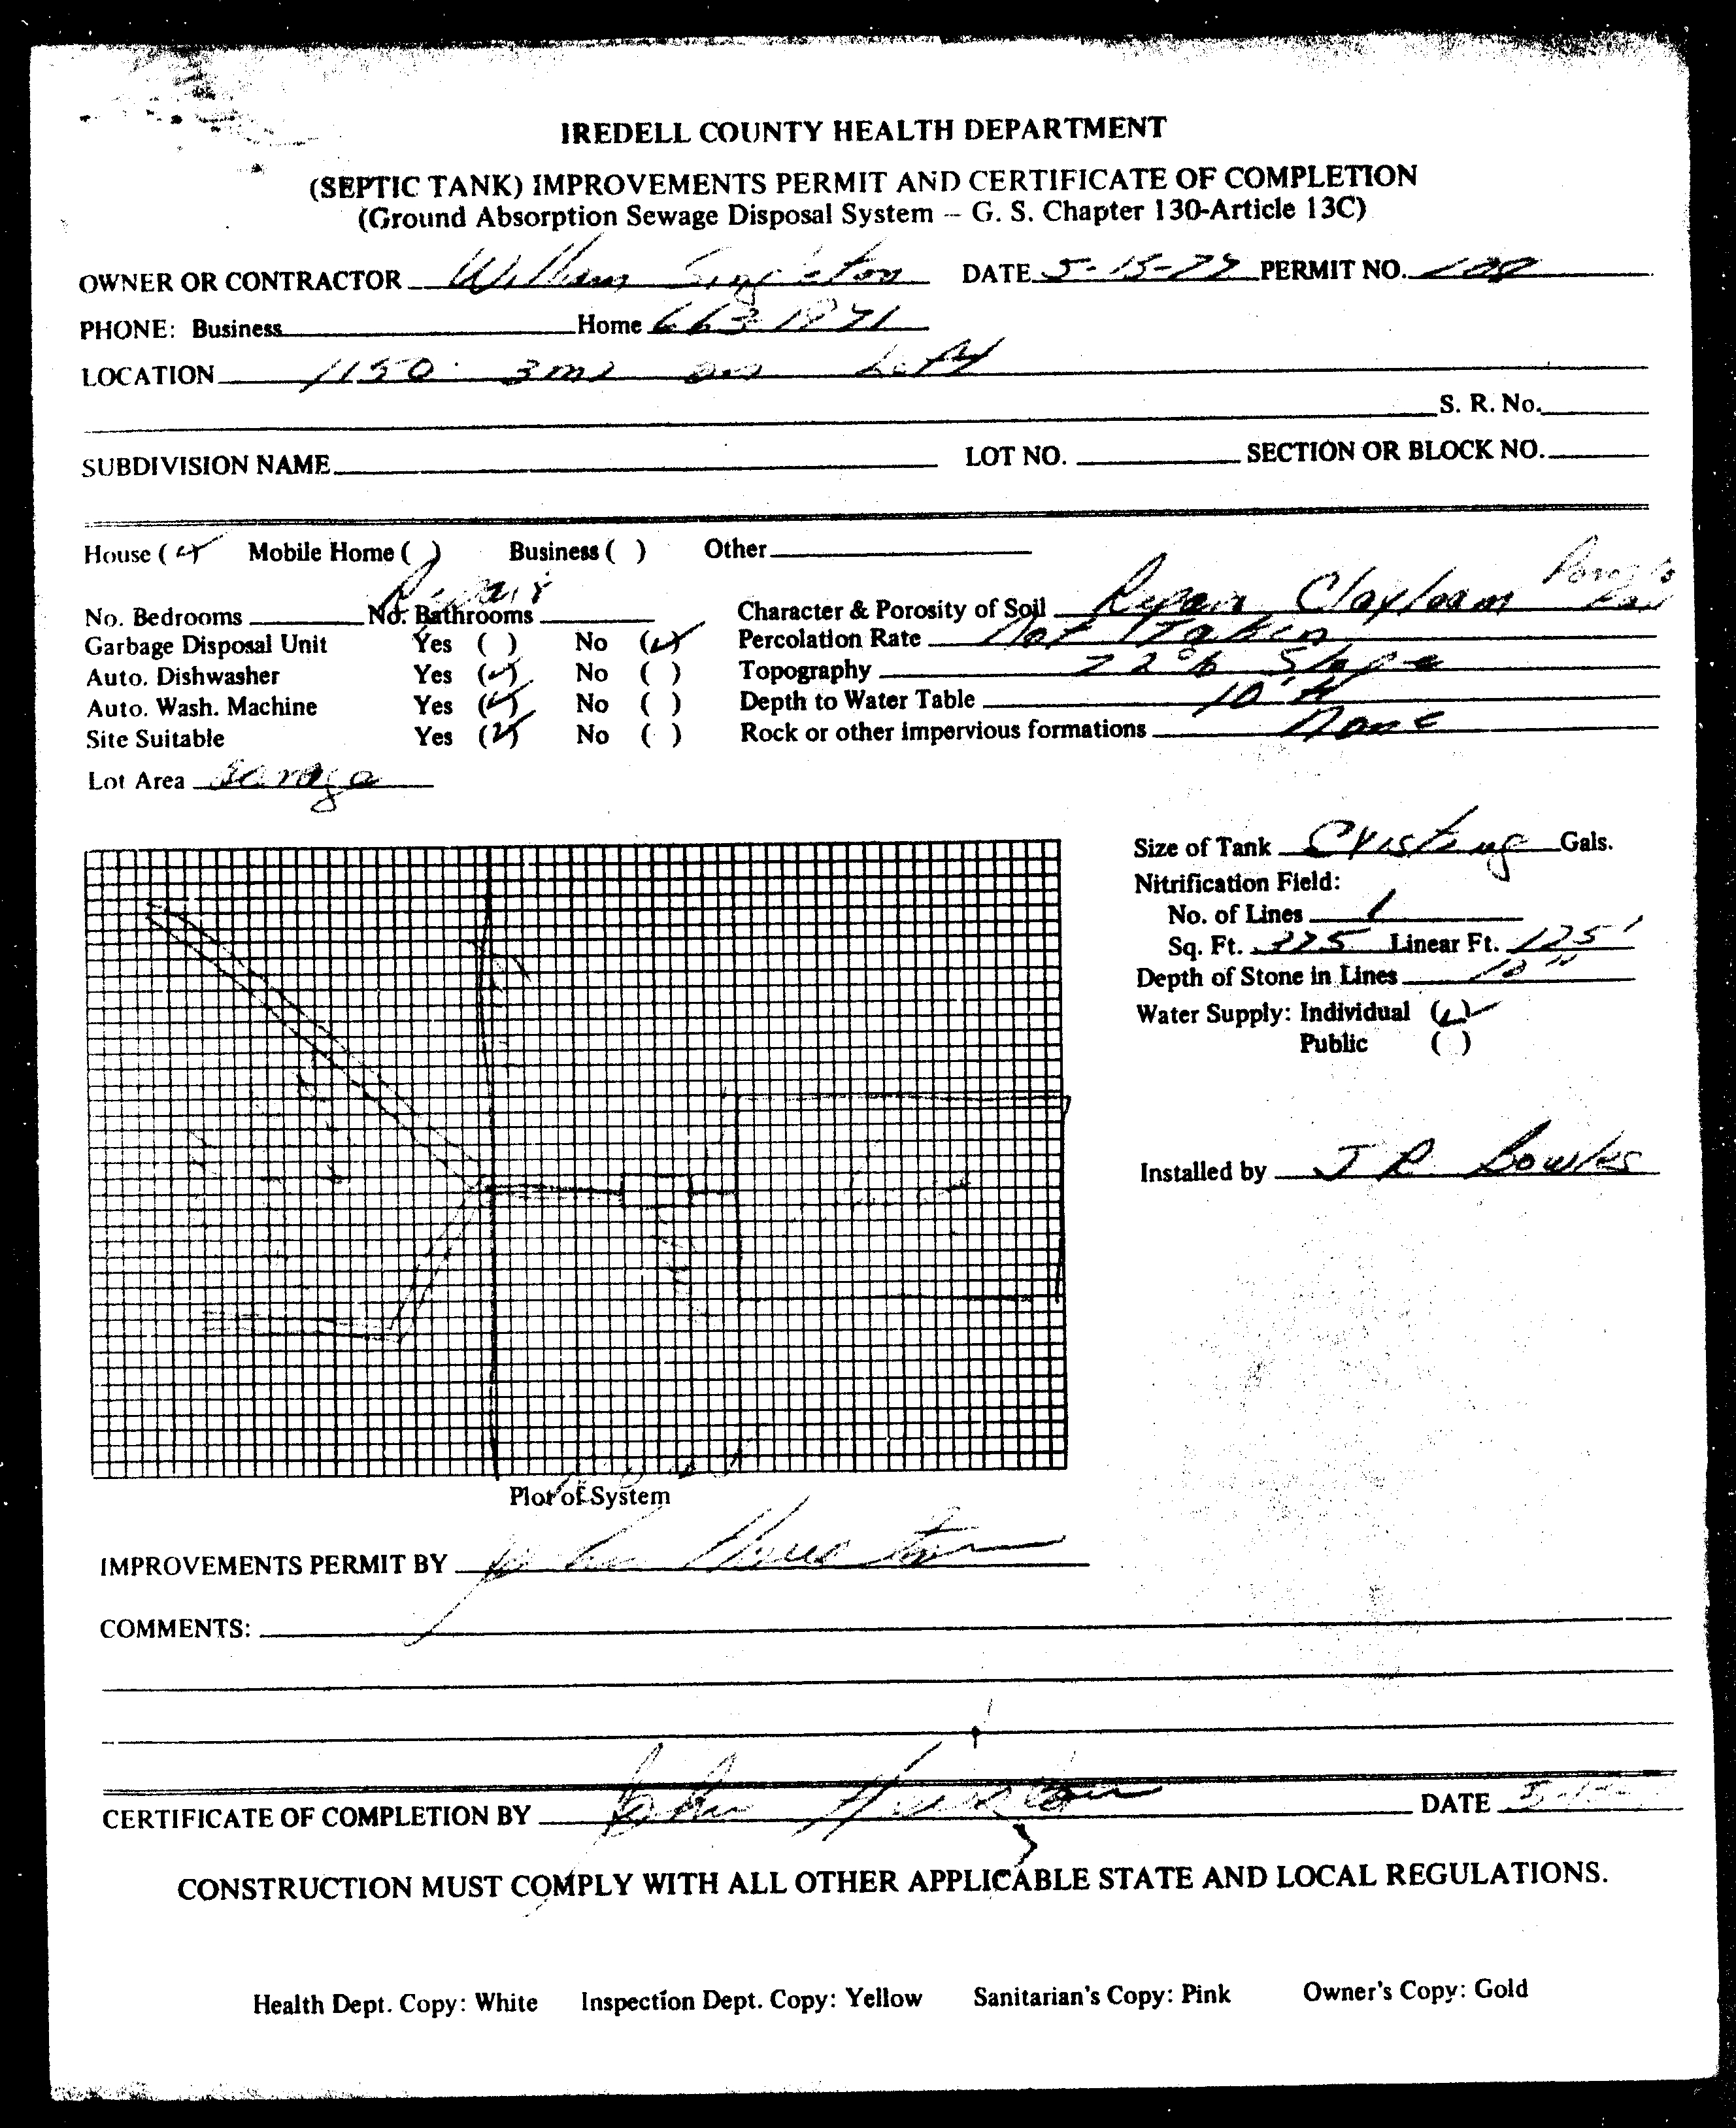 IREDELL COUNTY HEALTH DEPARTMENT
(SEPTIC TANK) IMPROVEMENTS PERMIT AND CERTIFICATE OF COMPLETION
(Ground Absorption Sewage Disposal System -- G. S. Chapter 130-Article 13C)
OWNER OR CONTRACTOR William Singleton DATE 5-15-79 PERMIT NO.
PHONE: Business Home 663-1871
LOCATION 1150 3 mi on Left
S. R. No.
SUBDIVISION NAME LOT NO. SECTION OR BLOCK NO.
House (✓) Mobile Home ( ) Business ( ) Other
Repair
No. Bedrooms No. Bathrooms Character & Porosity of Soil Repair Clayloam
Garbage Disposal Unit Yes ( ) No (✓) Percolation Rate Not Taken
Auto. Dishwasher Yes (✓) No ( ) Topography 22% Slope
Auto. Wash. Machine Yes (✓) No ( ) Depth to Water Table 10'
Site Suitable Yes (✓) No ( ) Rock or other impervious formations None
Lot Area
Size of Tank Existing Gals.
Nitrification Field:
No. of Lines 1
Sq. Ft. 375 Linear Ft. 125'
Depth of Stone in Lines 12"
Water Supply: Individual (✓)
Public ( )
Installed by J R Bowles
Plot of System
IMPROVEMENTS PERMIT BY John
COMMENTS:
CERTIFICATE OF COMPLETION BY John DATE
CONSTRUCTION MUST COMPLY WITH ALL OTHER APPLICABLE STATE AND LOCAL REGULATIONS.
Health Dept. Copy: White Inspection Dept. Copy: Yellow Sanitarian's Copy: Pink Owner's Copy: Gold